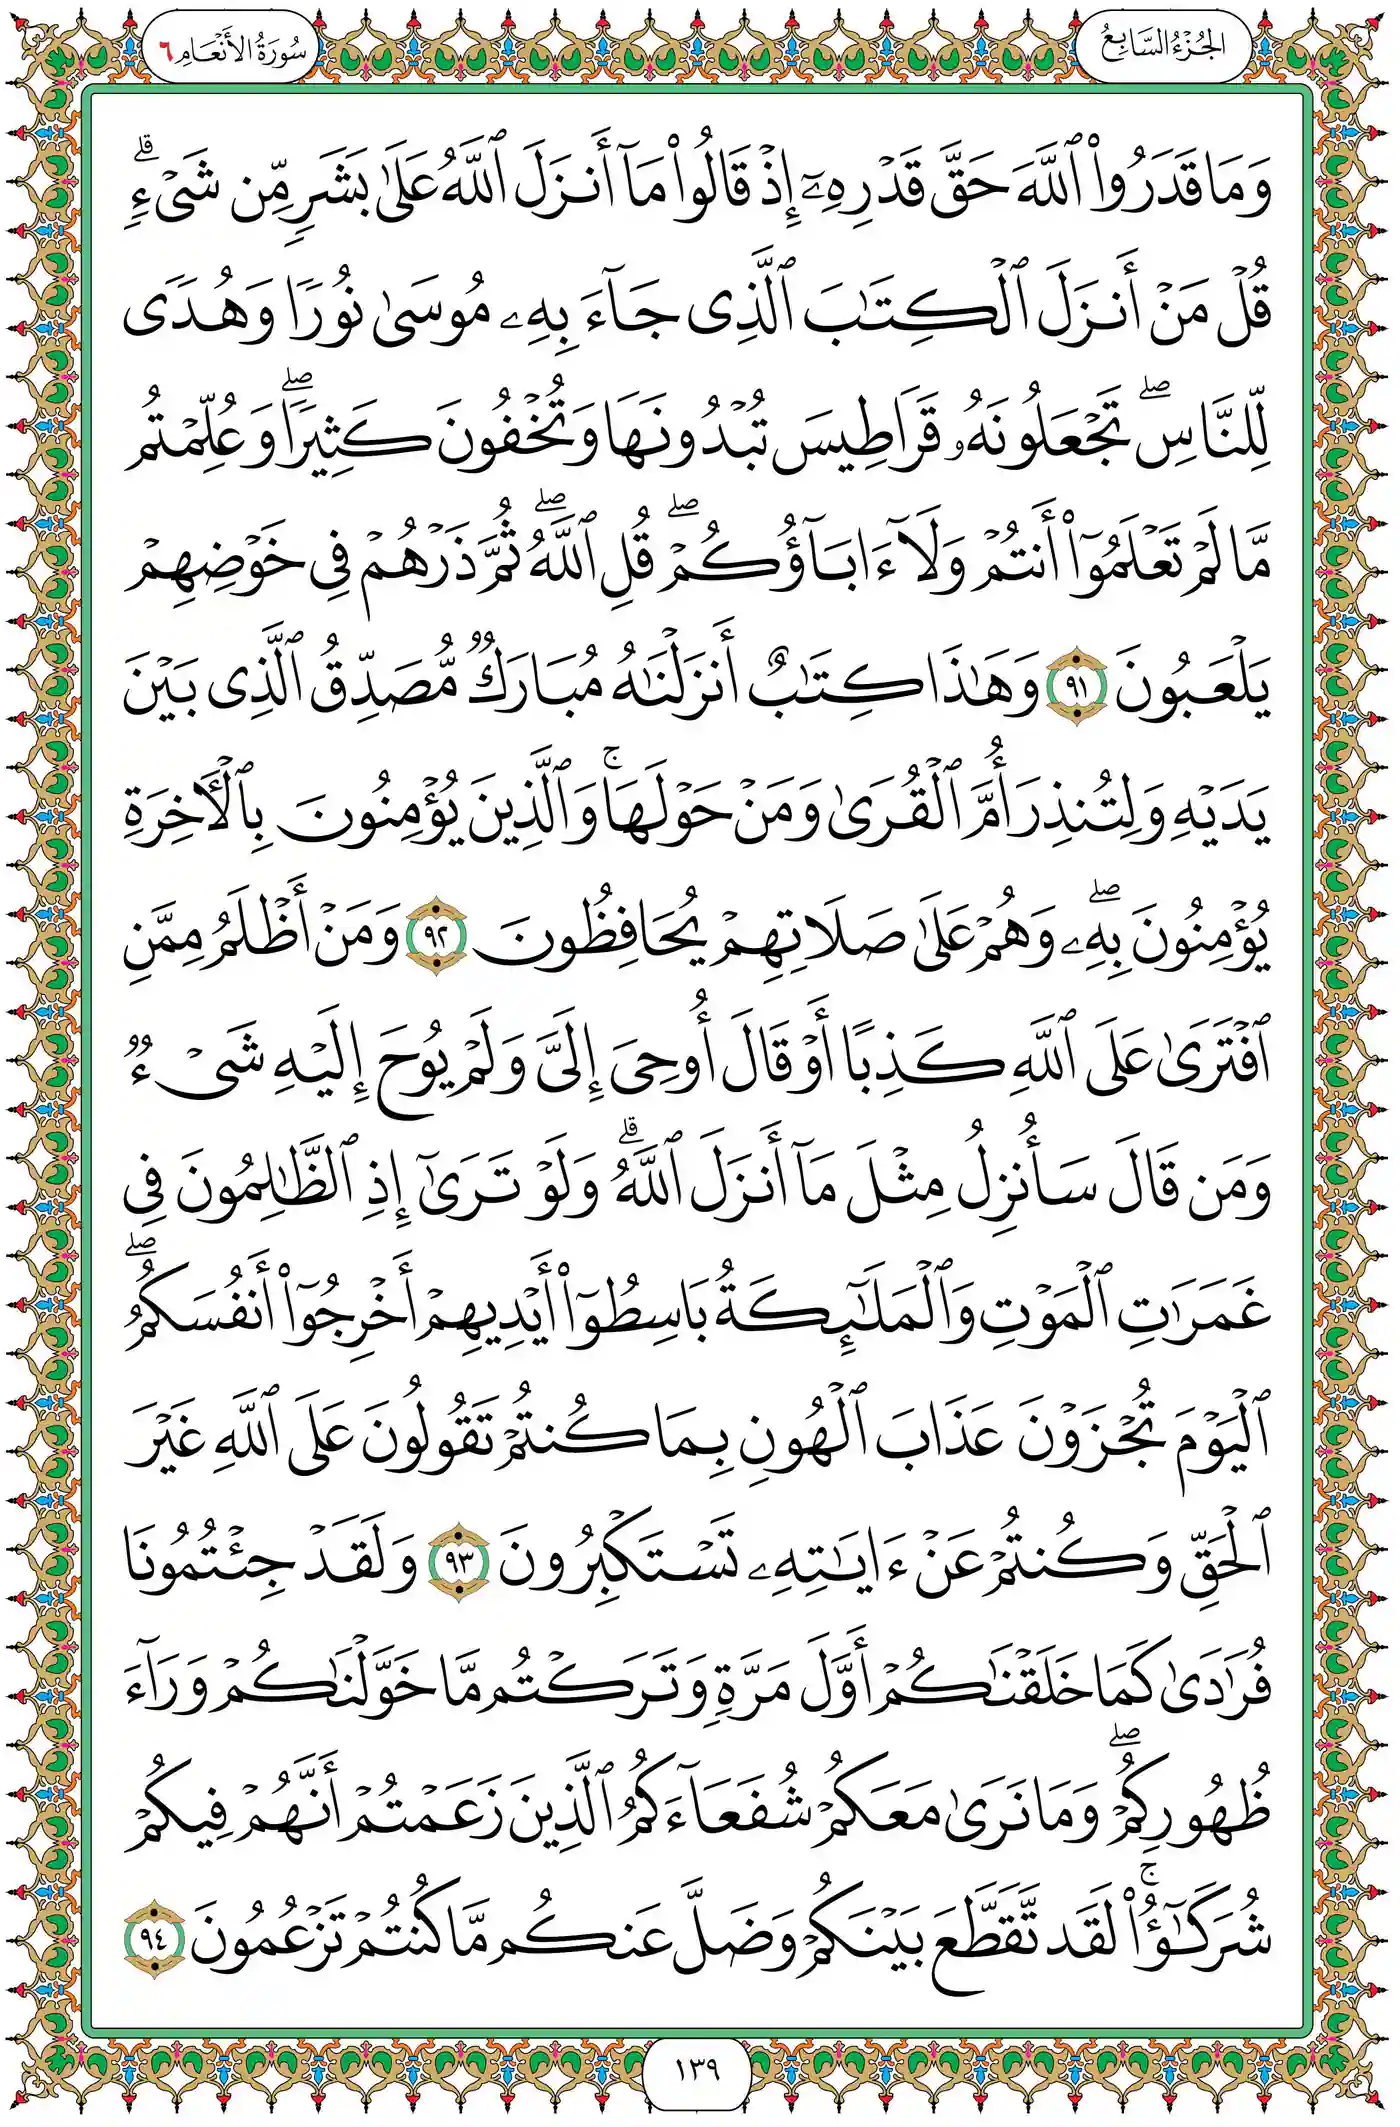 الجُزْءُ السَّابِعُ
سُورَةُ الأَنْعَامِ ٦
وَمَا قَدَرُوا۟ ٱللَّهَ حَقَّ قَدْرِهِۦٓ إِذْ قَالُوا۟ مَآ أَنزَلَ ٱللَّهُ عَلَىٰ بَشَرٍ مِّن شَىْءٍ ۗ
قُلْ مَنْ أَنزَلَ ٱلْكِتَـٰبَ ٱلَّذِى جَآءَ بِهِۦ مُوسَىٰ نُورًا وَهُدًى
لِّلنَّاسِ ۖ تَجْعَلُونَهُۥ قَرَاطِيسَ تُبْدُونَهَا وَتُخْفُونَ كَثِيرًا ۖ وَعُلِّمْتُم
مَّا لَمْ تَعْلَمُوٓا۟ أَنتُمْ وَلَآ ءَابَآؤُكُمْ ۖ قُلِ ٱللَّهُ ۖ ثُمَّ ذَرْهُمْ فِى خَوْضِهِمْ
يَلْعَبُونَ ٩١ وَهَـٰذَا كِتَـٰبٌ أَنزَلْنَـٰهُ مُبَارَكٌ مُّصَدِّقُ ٱلَّذِى بَيْنَ
يَدَيْهِ وَلِتُنذِرَ أُمَّ ٱلْقُرَىٰ وَمَنْ حَوْلَهَا ۚ وَٱلَّذِينَ يُؤْمِنُونَ بِٱلْـَٔاخِرَةِ
يُؤْمِنُونَ بِهِۦ ۖ وَهُمْ عَلَىٰ صَلَاتِهِمْ يُحَافِظُونَ ٩٢ وَمَنْ أَظْلَمُ مِمَّنِ
ٱفْتَرَىٰ عَلَى ٱللَّهِ كَذِبًا أَوْ قَالَ أُوحِىَ إِلَىَّ وَلَمْ يُوحَ إِلَيْهِ شَىْءٌ
وَمَن قَالَ سَأُنزِلُ مِثْلَ مَآ أَنزَلَ ٱللَّهُ ۗ وَلَوْ تَرَىٰٓ إِذِ ٱلظَّـٰلِمُونَ فِى
غَمَرَٰتِ ٱلْمَوْتِ وَٱلْمَلَـٰٓئِكَةُ بَاسِطُوٓا۟ أَيْدِيهِمْ أَخْرِجُوٓا۟ أَنفُسَكُمُ ۖ
ٱلْيَوْمَ تُجْزَوْنَ عَذَابَ ٱلْهُونِ بِمَا كُنتُمْ تَقُولُونَ عَلَى ٱللَّهِ غَيْرَ
ٱلْحَقِّ وَكُنتُمْ عَنْ ءَايَـٰتِهِۦ تَسْتَكْبِرُونَ ٩٣ وَلَقَدْ جِئْتُمُونَا
فُرَٰدَىٰ كَمَا خَلَقْنَـٰكُمْ أَوَّلَ مَرَّةٍ وَتَرَكْتُم مَّا خَوَّلْنَـٰكُمْ وَرَآءَ
ظُهُورِكُمْ ۖ وَمَا نَرَىٰ مَعَكُمْ شُفَعَآءَكُمُ ٱلَّذِينَ زَعَمْتُمْ أَنَّهُمْ فِيكُمْ
شُرَكَـٰٓؤُا۟ ۚ لَقَد تَّقَطَّعَ بَيْنَكُمْ وَضَلَّ عَنكُم مَّا كُنتُمْ تَزْعُمُونَ ٩٤
١٣٩